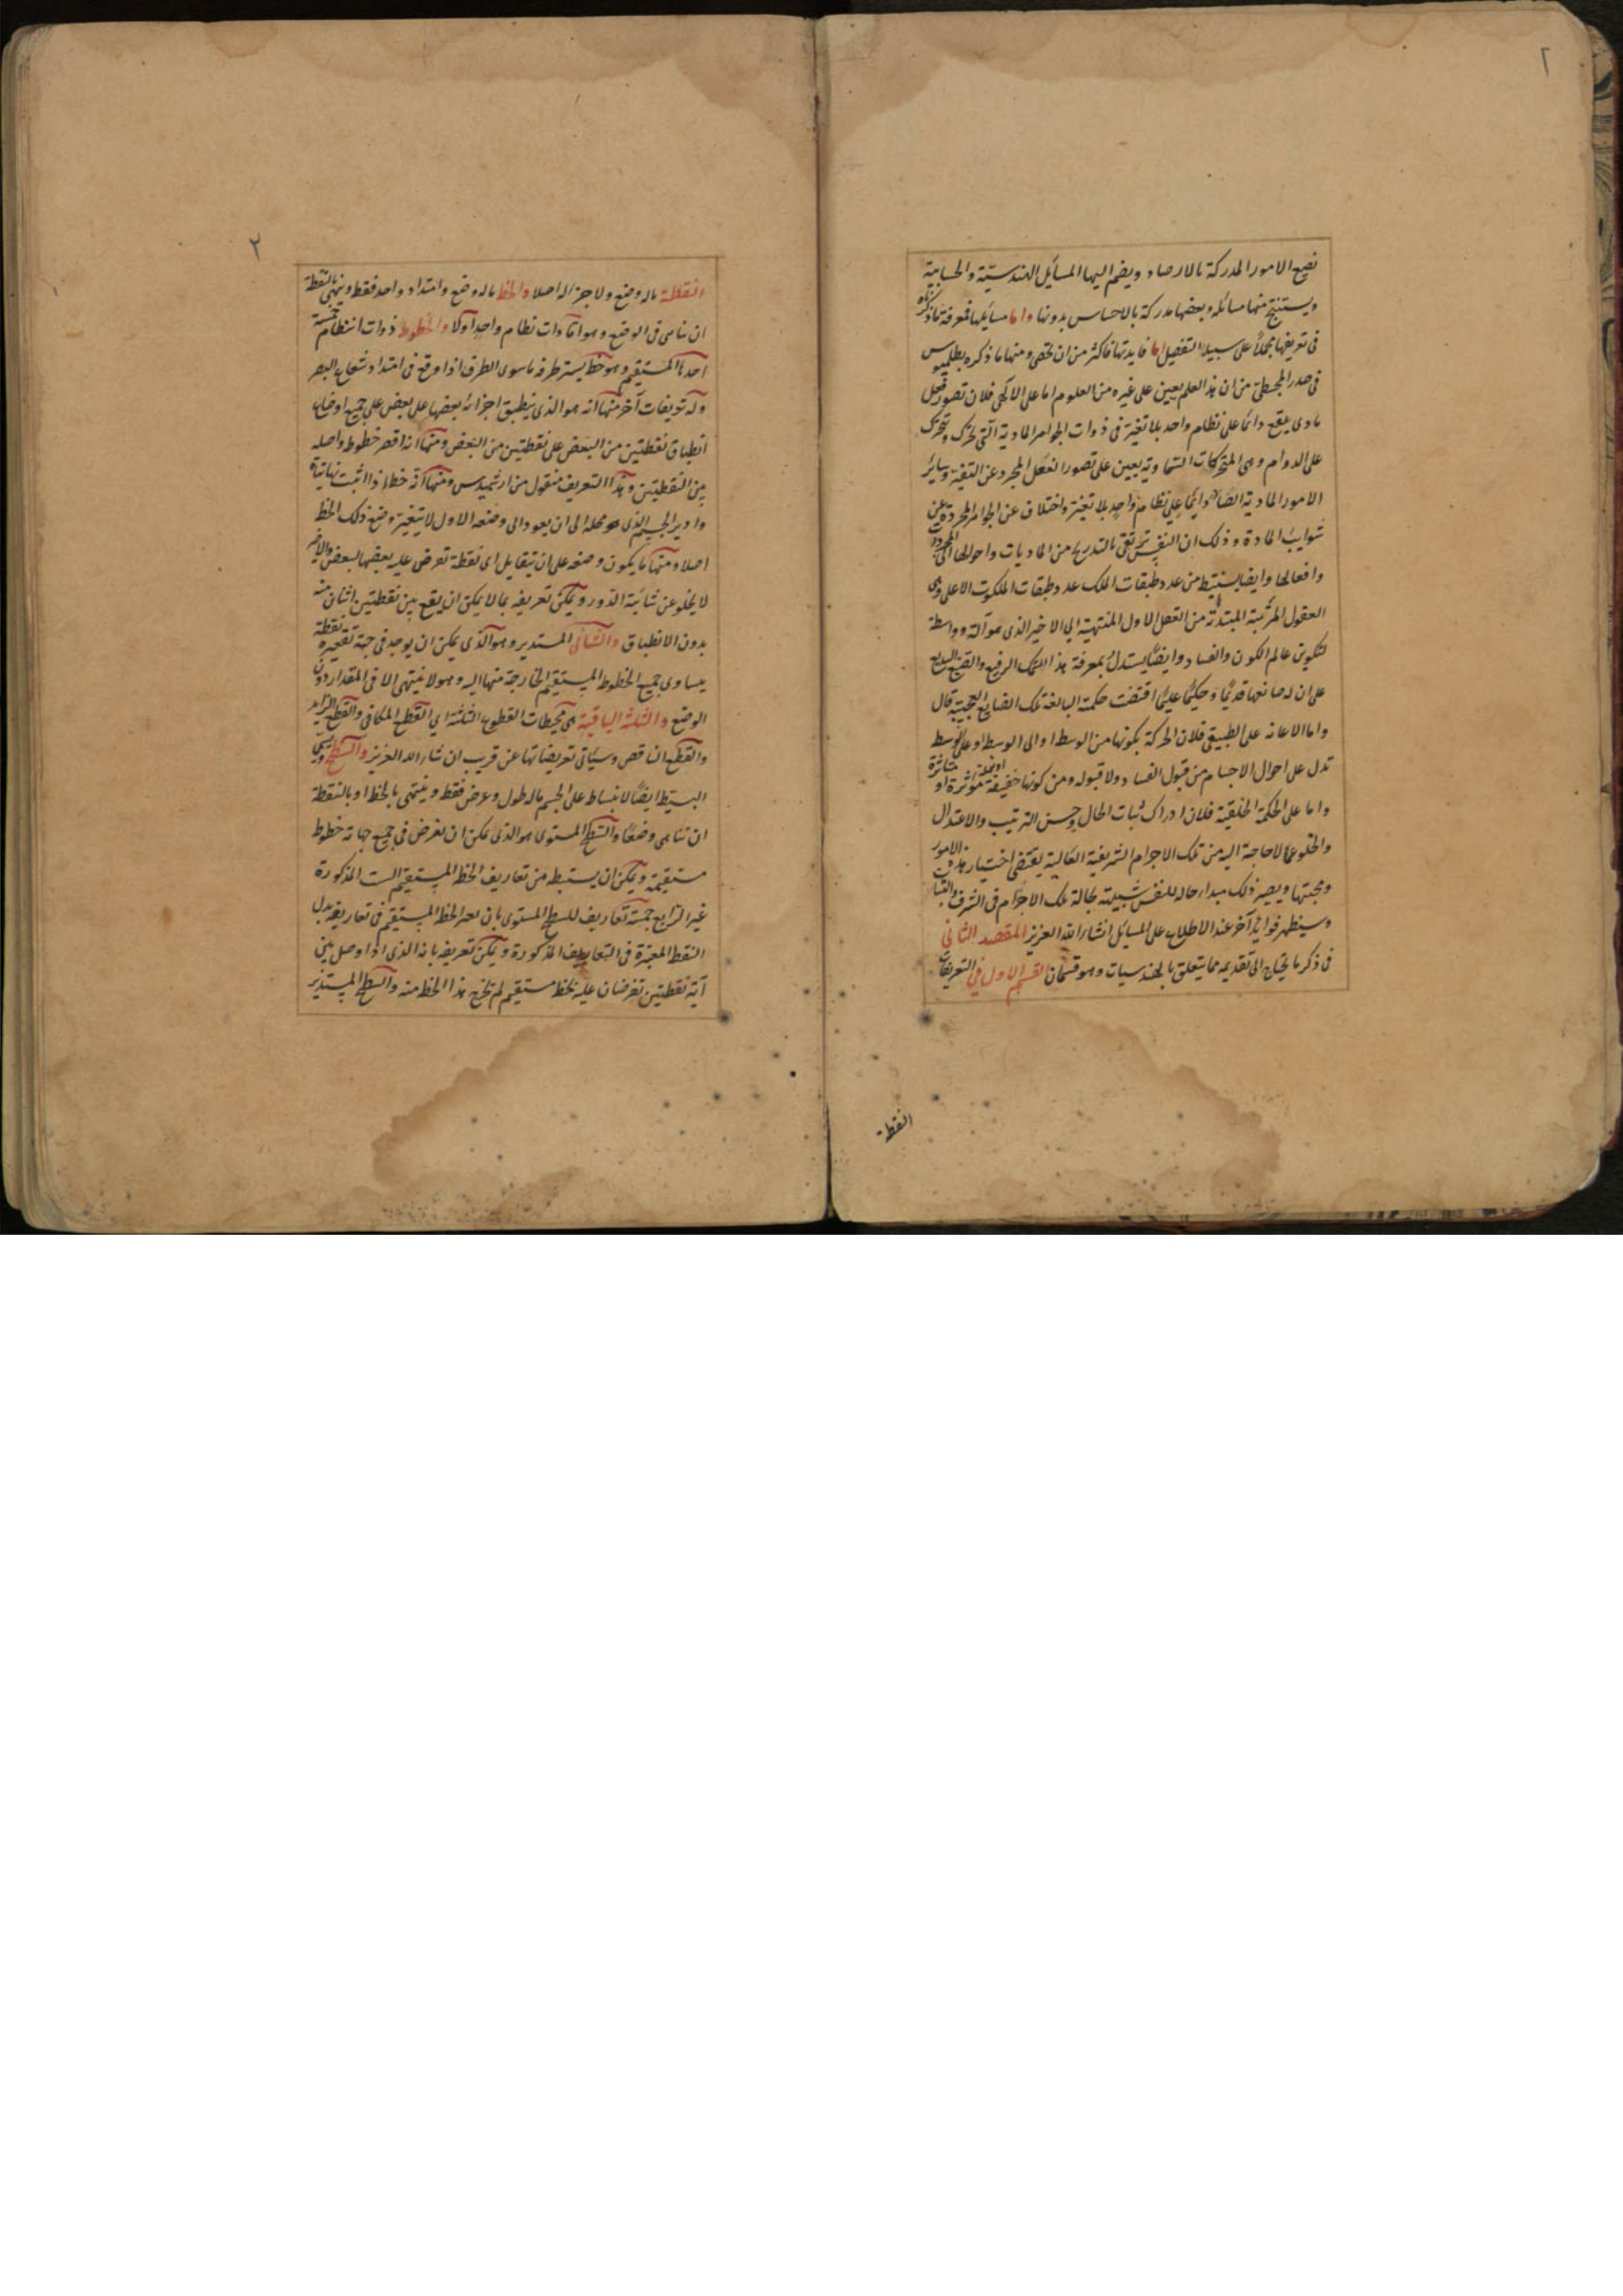 ٢
نضع الامور المدركة بالارصاد ويضم اليها المسائل الهندسيّة والحسابية
ويستنتج منها مسائله وبعضها مدركة بالاحساس بدونها واما مسائلها فمعرفة ما ذكرناه
فى تعريفها مجملاً على سبيل التفصيل اما فايدتها فاكثر من ان تحصى ومنها ما ذكره بطلميوس
فى صدر المجسطى من ان هذا العلم يعين على غيره من العلوم اما على الالهى فلان تصور فعل
مادى يقع دائما على نظام واحد بلا تغيّر فى ذوات الجواهر المادية التى تحرك وتتحرك
على الدوام وهى المتحركات السماوية يعين على تصور الفعل المجرد عن التغير وساير
الامور المادية الصادر دايما على نظام واحد بلا تغير واختلاف عن الجواهر المجردة عن
شوايب المادة وذلك ان النفس ترتقى بالتدريج من الماديات واحوالها الى المجردات
وافعالها وايضا يستنبط من عدد طبقات الملك عدد طبقات الملكوت الاعلى وهى
العقول المترتبة المبتدئة من العقل الاول المنتهية الى الاخير الذى هو آلة وواسطة
لتكوين عالم الكون والفساد وايضًا يستدل بمعرفة هذا السمك الرفيع والصنع البديع
على ان له صانعها قديمًا وحكيمًا عليمًا اقتضت حكمته البالغة تلك الصنايع العجيبة قال
واما الاعانه على الطبيعى فلان الحركة بكونها من الوسط او الى الوسط او على الوسط
تدل على احوال الاجسام من قبول الفساد ولا قبوله ومن كونها خفيفة او ثقيلة مؤثرة او متاثرة
واما على الحكمة الخلقية فلان ادراك ثبات الحال وحسن الترتيب والاعتدال
والخلو عما لا حاجة اليه من تلك الاجرام الشريفة العالية يقتضى اختيار هذه الامور
ومحبتها ويصير ذلك مبداء حاله للنفس شبيهة بحالة تلك الاجرام فى الشرف والثبات
وسيظهر فوايد آخر عند الاطلاع على المسايل انشاء الله العزيز المقصد الثانى
فى ذكر ما يحتاج الى تقديمه مما يتعلق بالهندسيات وهو قسمان القسم الاول فى التعريفات
النقطة
٢
النقطة ماله وضع ولا جزء له اصلا والخط ماله وضع وامتداد واحد فقط وينتهى بالنقطة
ان تناهى فى الوضع وهو اما ذات نظام واحد اولا والخطوط ذوات انتظام خمسة
احدها المستقيم وهو خط يستر طرفه ماسوى الطرف اذا وقع فى امتداد شعاع البصر
وله تعريفات آخر منها انه هو الذى ينطبق اجزائه بعضها على بعض على جميع اوضاع
انطباق نقطتين من البعض على نقطتين من البعض ومنها انه اقصر خطوط واصله
بين النقطتين وهذا التعريف منقول من ارشميدس ومنها انه خط اذا اثبت نهايتاه
وادير الجسم الذى هو محله الى ان يعود الى وضعه الاول لا يتغير وضع ذلك الخط
اصلا ومنها ما يكون وضعه على ان يتقابل اى نقطة تعرض عليه بعضها لبعض والاخير
لا يخلو عن شائبة الدور ويمكن تعريفه بما لا يمكن ان يقع بين نقطتين اثنان منه
بدون الانطباق والثانى المستدير وهو الذى يمكن ان يوجد فى جهة تقعيره نقطة
يساوى جميع الخطوط المستقيم الخارجة منها اليه وهو لا ينتهى الا فى المقدار دون
الوضع والثلثة الباقية هى محيطات القطوع الثلثة اى القطع المكافى والقطع الزايد
والقطع الناقص وسياتى تعريفاتها عن قريب ان شاء الله العزيز والسطح ويسمى
البسيط ايضًا لانبساط على الجسم ماله طول وعرض فقط وينتهى بالخط او بالنقطة
ان تناهى وضعًا والسطح المستوى هو الذى يمكن ان تفرض فى جميع جهاته خطوط
مستقيمة ويمكن ان يستنبط من تعاريف الخط المستقيم الست المذكورة
غير الرابع خمسة تعاريف للسطح المستوى بان الخط المستقيم فى تعاريفه بدل
النقط المعتبرة فى التعاريف المذكورة ويمكن تعريفه بانه الذى اذا وصل بين
آية نقطتين تفرضان عليه بخط مستقيم لم تخرج هذا الخط منه والسطح المستدير